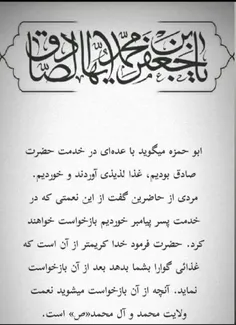 یا جعفر بن محمد ایها الصادق
ابو حمزه میگوید با عده‌ای در خدمت حضرت
صادق بودیم، غذا لذیذی آوردند و خوردیم.
مردی از حاضرین گفت از این نعمتی که در
خدمت پسر پیامبر خوردیم بازخواست خواهند
کرد. حضرت فرمود خدا کریمتر از آن است که
غذائی گوارا بشما بدهد بعد از آن بازخواست
نماید. آنچه از آن بازخواست میشوید نعمت
ولایت محمد و آل محمد«ص» است.